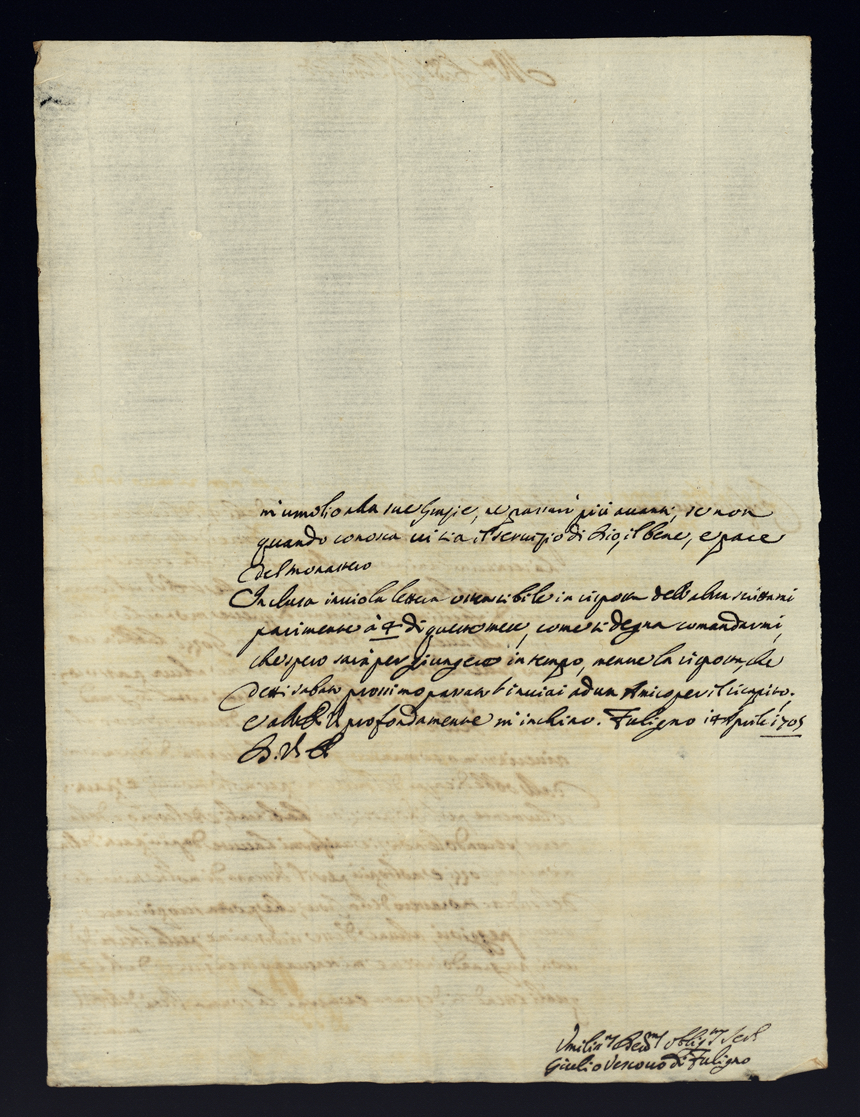 m'umolio alla sue Grazie, ne passarò più avanti, se non
quando conosca vi sia il servizio di Dio, il bene, e pace
del monastero
Inclusa invio la lettera ostensibile in risposta dell'altra scrittami
parimente à 4 di questo mese, come si degna comandarmi,
che spero sarà per giungere in tempo, mentre la risposta, che
detti sabato prossimo passato l'inviai ad un Amico per il ricapito.
E a V. S. Ill. profondamente m'inchino. Fuligno 14 Aprile 1705
D. V. S.
Umiliss.o Dev.mo Oblig.mo Ser.
Giulio Vescovo di Fuligno